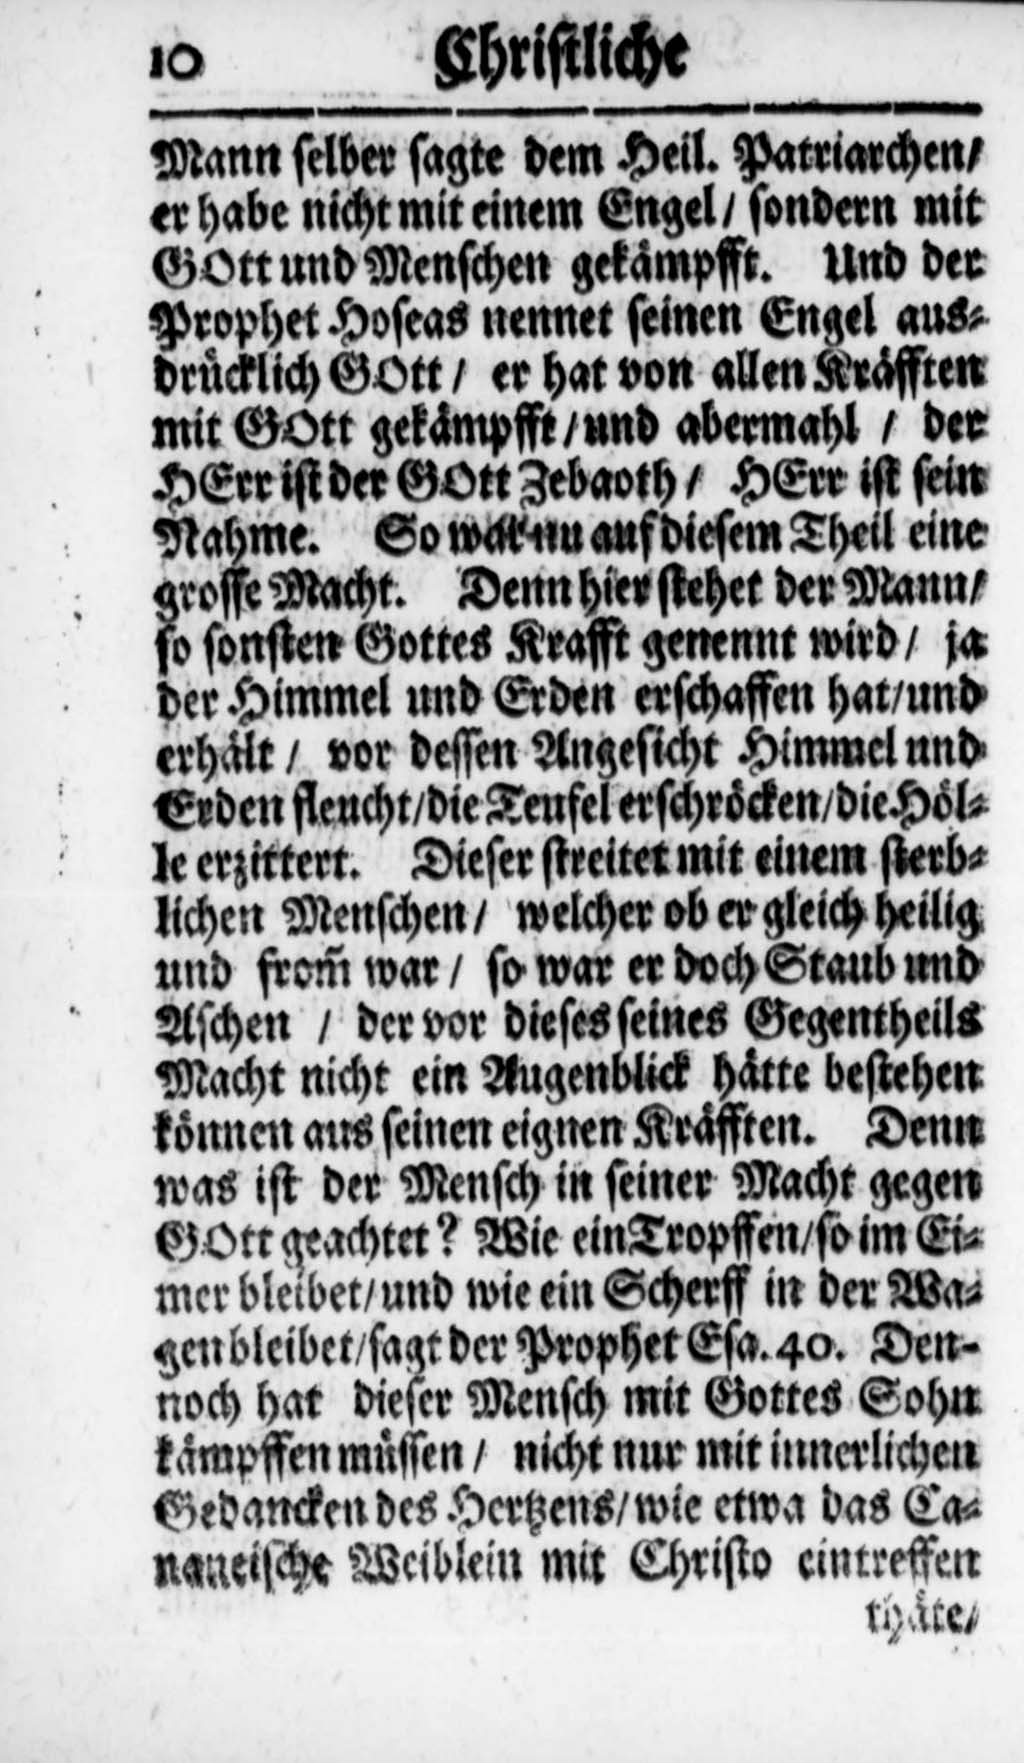 10 Christliche
Mann selber sagte dem Heil. Patriarchen/
er habe nicht mit einem Engel/ sondern mit
GOtt und Menschen gekämpfft. Und der
Prophet Hoseas nennet seinen Engel aus-
drücklich GOtt/ er hat von allen Kräfften
mit GOtt gekämpfft/ und abermahl / der
HErr ist der GOtt Zebaoth/ HErr ist sein
Nahme. So war nu auf diesem Theil eine
grosse Macht. Denn hier stehet der Mann/
so sonsten Gottes Krafft genennt wird/ ja
der Himmel und Erden erschaffen hat/und
erhält / vor dessen Angesicht Himmel und
Erden fleucht/die Teufel erschröcken/die Höl-
le erzittert. Dieser streitet mit einem sterb-
lichen Menschen/ welcher ob er gleich heilig
und from̃ war / so war er doch Staub und
Aschen / der vor dieses seines Gegentheils
Macht nicht ein Augenblick hätte bestehen
können aus seinen eignen Kräfften. Denn
was ist der Mensch in seiner Macht gegen
GOtt geachtet? Wie ein Tropffen/so im Ei-
mer bleibet/und wie ein Scherff in der Wa-
gen bleibet/sagt der Prophet Esa. 40. Den-
noch hat dieser Mensch mit Gottes Sohn
kämpffen müssen/ nicht nur mit innerlichen
Gedancken des Hertzens/wie etwa das Ca-
naneische Weiblein mit Christo eintreffen
thäte/